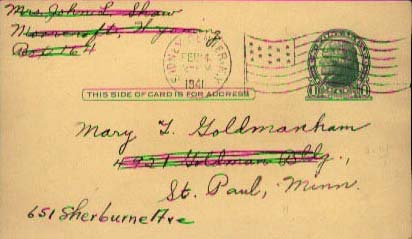 Mrs. John L. Shaw
Moorcroft, Wyoming
Box 164
SIDNEY
1941
THIS SIDE OF CARD IS FOR ADDRESS
Mary T. Goldmanham
Goldman Bldg.,
St. Paul, Minn.
651 Sherburne Ave